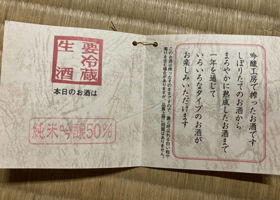 要冷蔵
生酒
本日のお酒は
純米吟醸50%
吟醸工房で搾ったお酒です
しぼりたてのお酒から
まろやかに熟成したお酒まで
一年を通じて
いろいろなタイプのお酒が
お楽しみいただけます